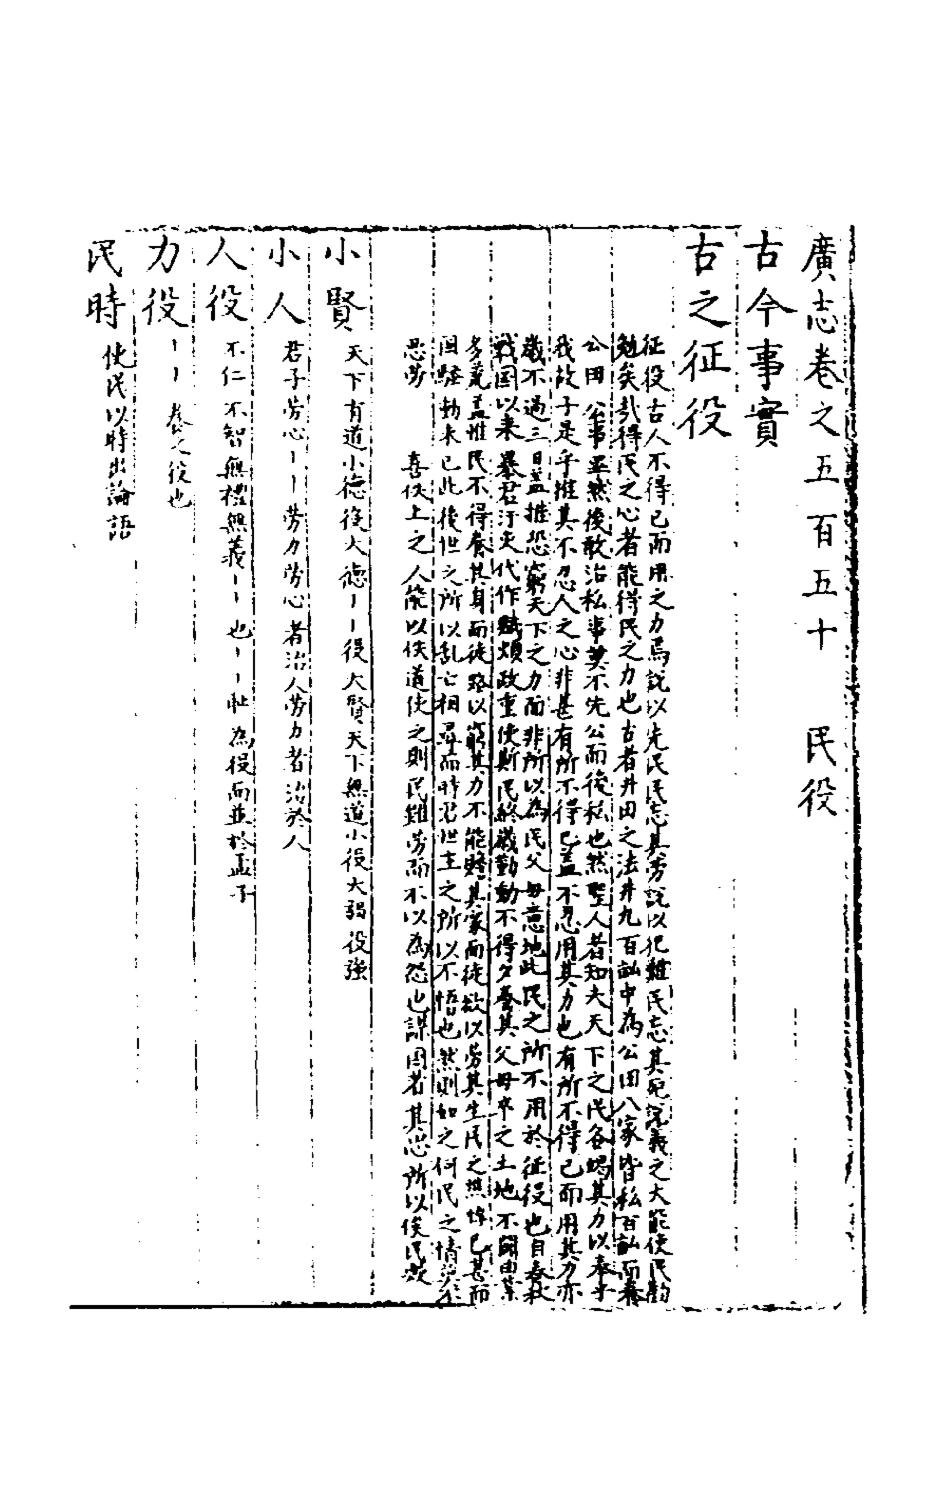 廣志卷之五百五十　民役
古今事實
古之征役
征役古人不得已而用之力焉説以先民民忘其勞説以犯難民忘其死説義之大能使民勸
勉矣哉得民之心者能得民之力也古者井田之法井九百畝中為公田八家皆私百畝而養
公田　公事畢然後敢治私事莫不先公而後私也然聖人者知夫天下之民各竭其力以奉乎
我故于是乎推其不忍人之心非甚有所不得已盖不忍用其力也有所不得已而用其力亦
歲不過三日盖推恐窮天下之力而非所以為民父母意地此民之所不用於征役也自春秋
戰国以来暴君汙吏代作賦煩政重使斯民終歲勤動不得夕養其父母卒之土地不闢田業
多荒盖惟民不得養其身而徒路以窮其力不能贍其家而徒欲以勞其生民之憔悴已甚而
困騷動未已此後世之所以乱亡相尋而時君世主之所以不悟也然則如之何民之情莫不
思勞　喜佚上之人能以佚道使之則民雖勞而不以為怨也謀国者其思所以俟民哉
小賢　天下有道小德役大德丨丨役大賢天下無道小役大弱役強
小人　君子勞心丨丨勞力勞心者治人勞力者治於人
人役　不仁不智無禮無義丨丨也丨丨恥為役而並於孟子
力役　丨丨　養之役也
民時　使民以時出論語